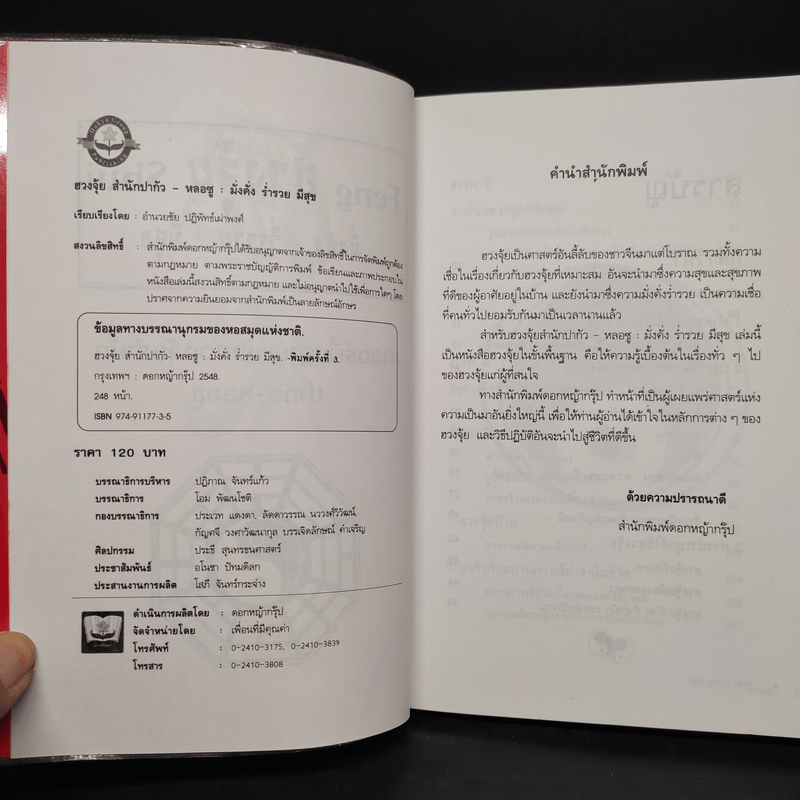 ฮวงจุ้ย สำนักปากัว - หลอซู : มั่งคั่ง ร่ำรวย มีสุข
เรียบเรียงโดย : อำนวยชัย ปฏิพัทธ์เผ่าพงศ์
สงวนลิขสิทธิ์ : สำนักพิมพ์ดอกหญ้ากรุ๊ปได้รับอนุญาตจากเจ้าของลิขสิทธิ์ในการจัดพิมพ์ถูกต้อง
ตามกฎหมาย ตามพระราชบัญญัติการพิมพ์ ข้อเขียนและภาพประกอบใน
หนังสือเล่มนี้สงวนสิทธิ์ตามกฎหมาย และไม่อนุญาตนำไปใช้เพื่อการใดๆ โดย
ปราศจากความยินยอมจากสำนักพิมพ์เป็นลายลักษณ์อักษร
ข้อมูลทางบรรณานุกรมของหอสมุดแห่งชาติ.
ฮวงจุ้ย สำนักปากัว- หลอซู : มั่งคั่ง ร่ำรวย มีสุข. -พิมพ์ครั้งที่ 3.
กรุงเทพฯ : ดอกหญ้ากรุ๊ป 2548.
248 หน้า.
ISBN 974-91177-3-5
ราคา 120 บาท
บรรณาธิการบริหาร : ปฏิภาณ จันทร์แก้ว
บรรณาธิการ : โอม พัฒนโชติ
กองบรรณาธิการ : ประเวท แดงดา, ลัดดาวรรณ นววงศ์วิวัฒน์,
กัญคจี วงศาวัฒนากุล บรรเจิดลักษณ์ คำเจริญ
ศิลปกรรม : ประธี สุนทรธนศาสตร์
ประชาสัมพันธ์ : อโนชา ปัทมดิลก
ประสานงานการผลิต : โสภี จันทร์กระจ่าง
ดำเนินการผลิตโดย : ดอกหญ้ากรุ๊ป
จัดจำหน่ายโดย : เพื่อนที่มีคุณค่า
โทรศัพท์ : 0-2410-3175, 0-2410-3839
โทรสาร : 0-2410-3808
คำนำสำนักพิมพ์
ฮวงจุ้ยเป็นศาสตร์อันลี้ลับของชาวจีนมาแต่โบราณ รวมทั้งความ
เชื่อในเรื่องเกี่ยวกับฮวงจุ้ยที่เหมาะสม อันจะนำมาซึ่งความสุขและสุขภาพ
ที่ดีของผู้อาศัยอยู่ในบ้าน และยังนำมาซึ่งความมั่งคั่งร่ำรวย เป็นความเชื่อ
ที่คนทั่วไปยอมรับกันมาเป็นเวลานานแล้ว
สำหรับฮวงจุ้ยสำนักปากัว - หลอซู : มั่งคั่ง ร่ำรวย มีสุข เล่มนี้
เป็นหนังสือฮวงจุ้ยในขั้นพื้นฐาน คือให้ความรู้เบื้องต้นในเรื่องทั่ว ๆ ไป
ของฮวงจุ้ยแก่ผู้ที่สนใจ
ทางสำนักพิมพ์ดอกหญ้ากรุ๊ป ทำหน้าที่เป็นผู้เผยแพร่ศาสตร์แห่ง
ความเป็นมาอันยิ่งใหญ่นี้ เพื่อให้ท่านผู้อ่านได้เข้าใจในหลักการต่าง ๆ ของ
ฮวงจุ้ย และวิธีปฏิบัติอันจะนำไปสู่ชีวิตที่ดีขึ้น
ด้วยความปรารถนาดี
สำนักพิมพ์ดอกหญ้ากรุ๊ป